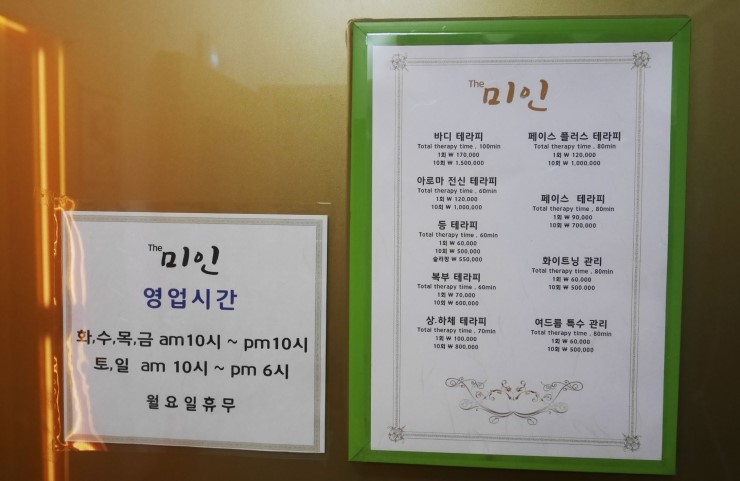 The 미인
영업시간
화,수,목,금 am10시 ~ pm10시
토,일 am 10시 ~ pm 6시
월요일휴무
The 미인
바디 테라피
Total therapy time , 100min
1회 ₩ 170,000
10회 ₩ 1,500,000
아로마 전신 테라피
Total therapy time , 60min
1회 ₩ 120,000
10회 ₩ 1,000,000
등 테라피
Total therapy time , 60min
1회 ₩ 60,000
10회 ₩ 500,000
슬리밍 ₩ 550,000
복부 테라피
Total therapy time , 60min
1회 ₩ 70,000
10회 ₩ 600,000
상.하체 테라피
Total therapy time , 70min
1회 ₩ 100,000
10회 ₩ 800,000
페이스 플러스 테라피
Total therapy time , 80min
1회 ₩ 120,000
10회 ₩ 1,000,000
페이스 테라피
Total therapy time , 80min
1회 ₩ 90,000
10회 ₩ 700,000
화이트닝 관리
Total therapy time , 80min
1회 ₩ 60,000
10회 ₩ 500,000
여드름 특수 관리
Total therapy time , 80min
1회 ₩ 60,000
10회 ₩ 500,000